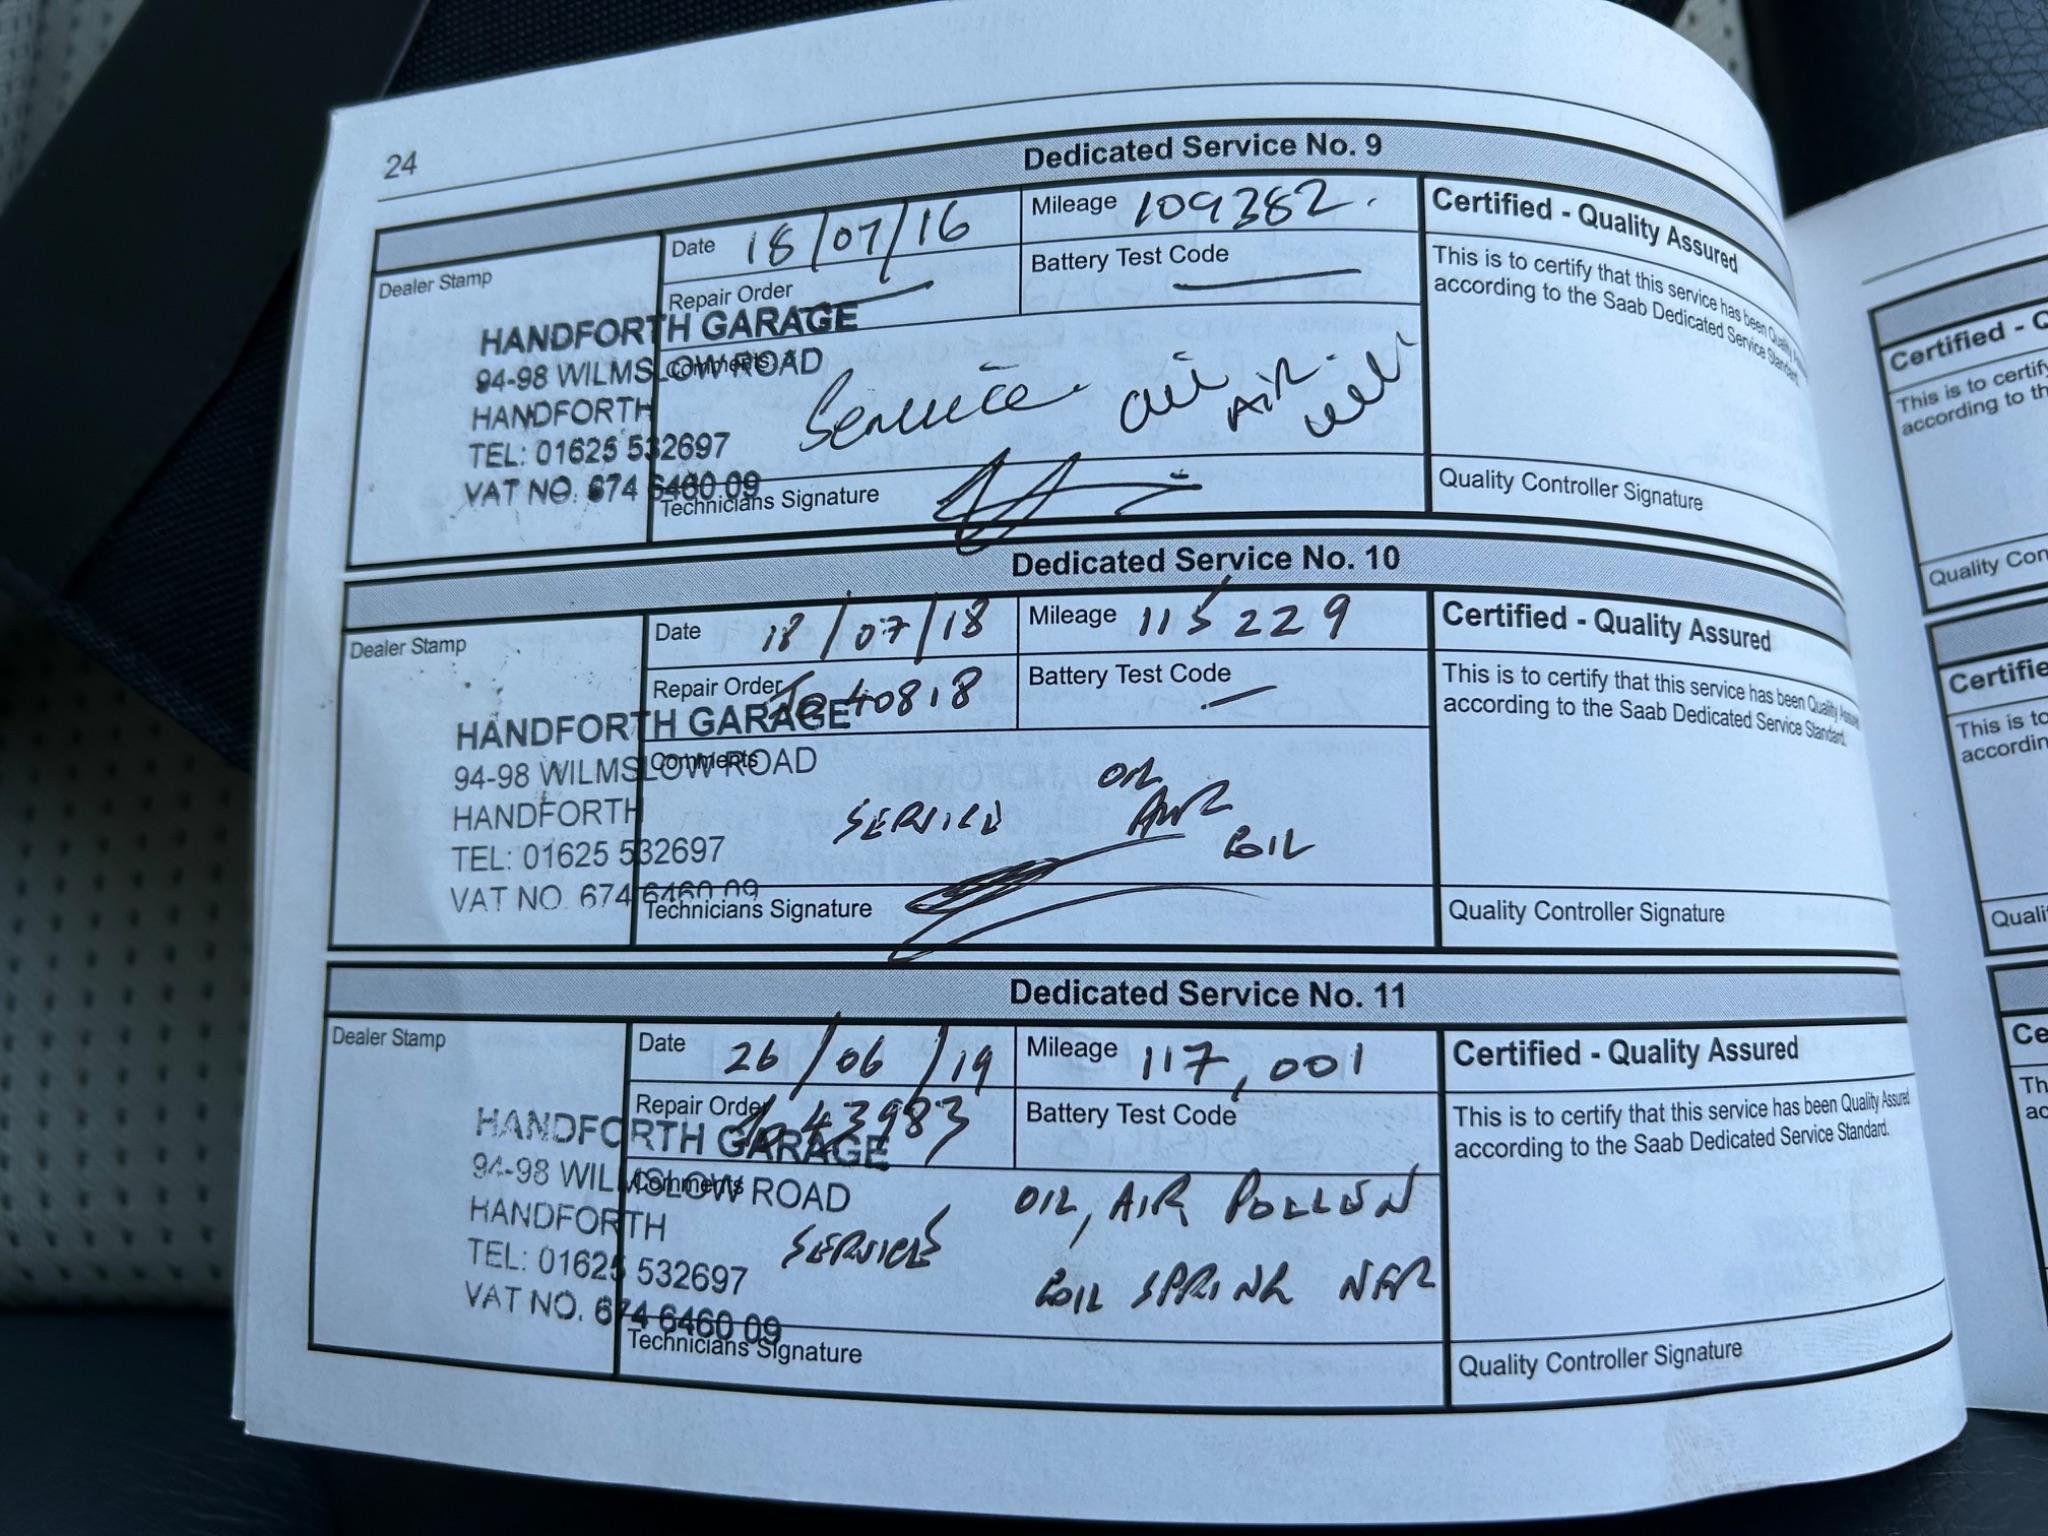 24
Dedicated Service No. 9
Dealer Stamp
Date 18/07/16
Mileage 109382.
Certified - Quality Assured
Repair Order
Battery Test Code —
This is to certify that this service has been Quality
according to the Saab Dedicated Service Standard.
HANDFORTH GARAGE
94-98 WILMSLOW ROAD
HANDFORTH
TEL: 01625 532697
VAT NO. 674 6460 09
Comments
Service oil AIR
Technicians Signature
Quality Controller Signature
Dedicated Service No. 10
Dealer Stamp
Date 18/07/18
Mileage 115229
Certified - Quality Assured
Repair Order 40818
Battery Test Code —
This is to certify that this service has been Quality Assured
according to the Saab Dedicated Service Standard.
HANDFORTH GARAGE
94-98 WILMSLOW ROAD
HANDFORTH
TEL: 01625 532697
VAT NO. 674 6460 09
Comments
SERVICE OIL
AIR
COIL
Technicians Signature
Quality Controller Signature
Dedicated Service No. 11
Dealer Stamp
Date 26/06/19
Mileage 117,001
Certified - Quality Assured
Repair Order 43983
Battery Test Code
This is to certify that this service has been Quality Assured
according to the Saab Dedicated Service Standard.
HANDFORTH GARAGE
94-98 WILMSLOW ROAD
HANDFORTH
TEL: 01625 532697
VAT NO. 674 6460 09
Comments
SERVICE OIL, AIR, POLLEN
COIL SPRING NSR
Technicians Signature
Quality Controller Signature
Certified -
This is to certify
according to
Quality Con
This is to
Quali